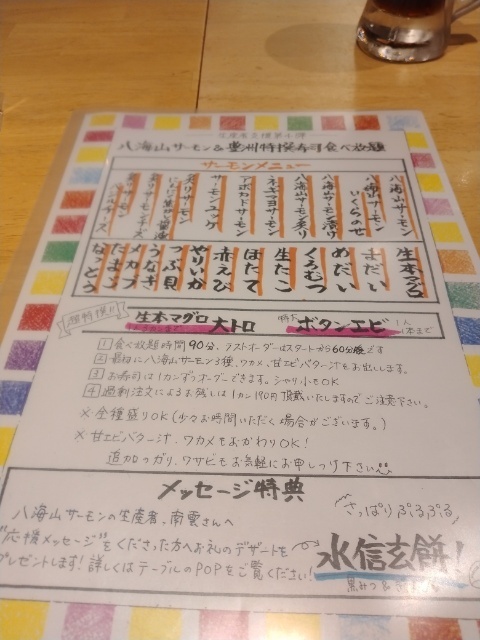 八海山サーモン&豊州特撰寿司食べ放題
サーモンメニュー
八海山サーモン
八海山サーモン いくらのせ
八海山サーモン漬け
八海山サーモン炙り
ネギマヨサーモン
アボカドサーモン
サーモンユッケ
生本マグロ
まだい
めだい
くろむつ
生たこ
ほたて
赤えび
やりいか
つぶ貝
うなぎ
メカブ
たまご
なっとう
生本マグロ 大トロ
ボタンエビ 一人1本まで
1 食べ放題時間90分、ラストオーダーはスタートから60分後です
2 最初に八海山サーモン3種、ワカメ、甘エビバター汁をお出しします。
3 お寿司は1カンずつオーダーできます。シャリ小もOK
4 過剰注文によるお残しは1カン190円頂戴いたしますのでご注意下さい。
※全種盛りOK(少々お時間いただく場合がございます。)
※甘エビバター汁、ワカメもおかわりOK!
追加のガリ、ワサビもお気軽にお申しつけ下さい
メッセージ特典
八海山サーモンの生産者、南雲さんへ
"応援メッセージ"をくださった方へお礼のデザートを
プレゼントします!詳しくはテーブルのPOPをご覧ください!
さっぱりぷるぷる
水信玄餅!